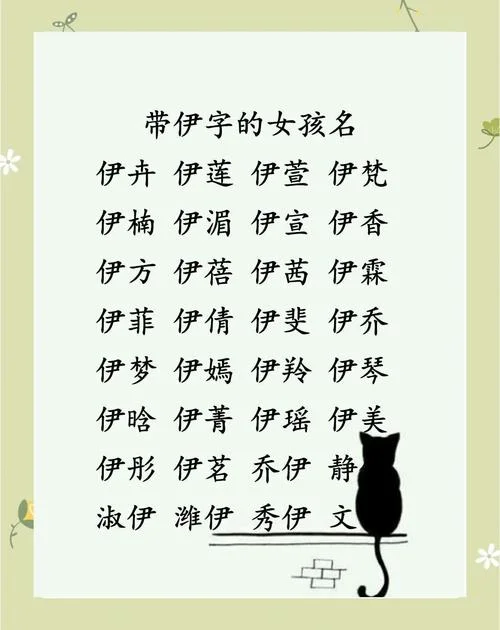 带伊字的女孩名
伊卉 伊莲 伊萱 伊梵
伊楠 伊湄 伊宣 伊香
伊方 伊蓓 伊茜 伊霖
伊菲 伊倩 伊斐 伊乔
伊梦 伊嫣 伊羚 伊琴
伊晗 伊菁 伊瑶 伊美
伊彤 伊茗 乔伊 静
淑伊 潍伊 秀伊 文